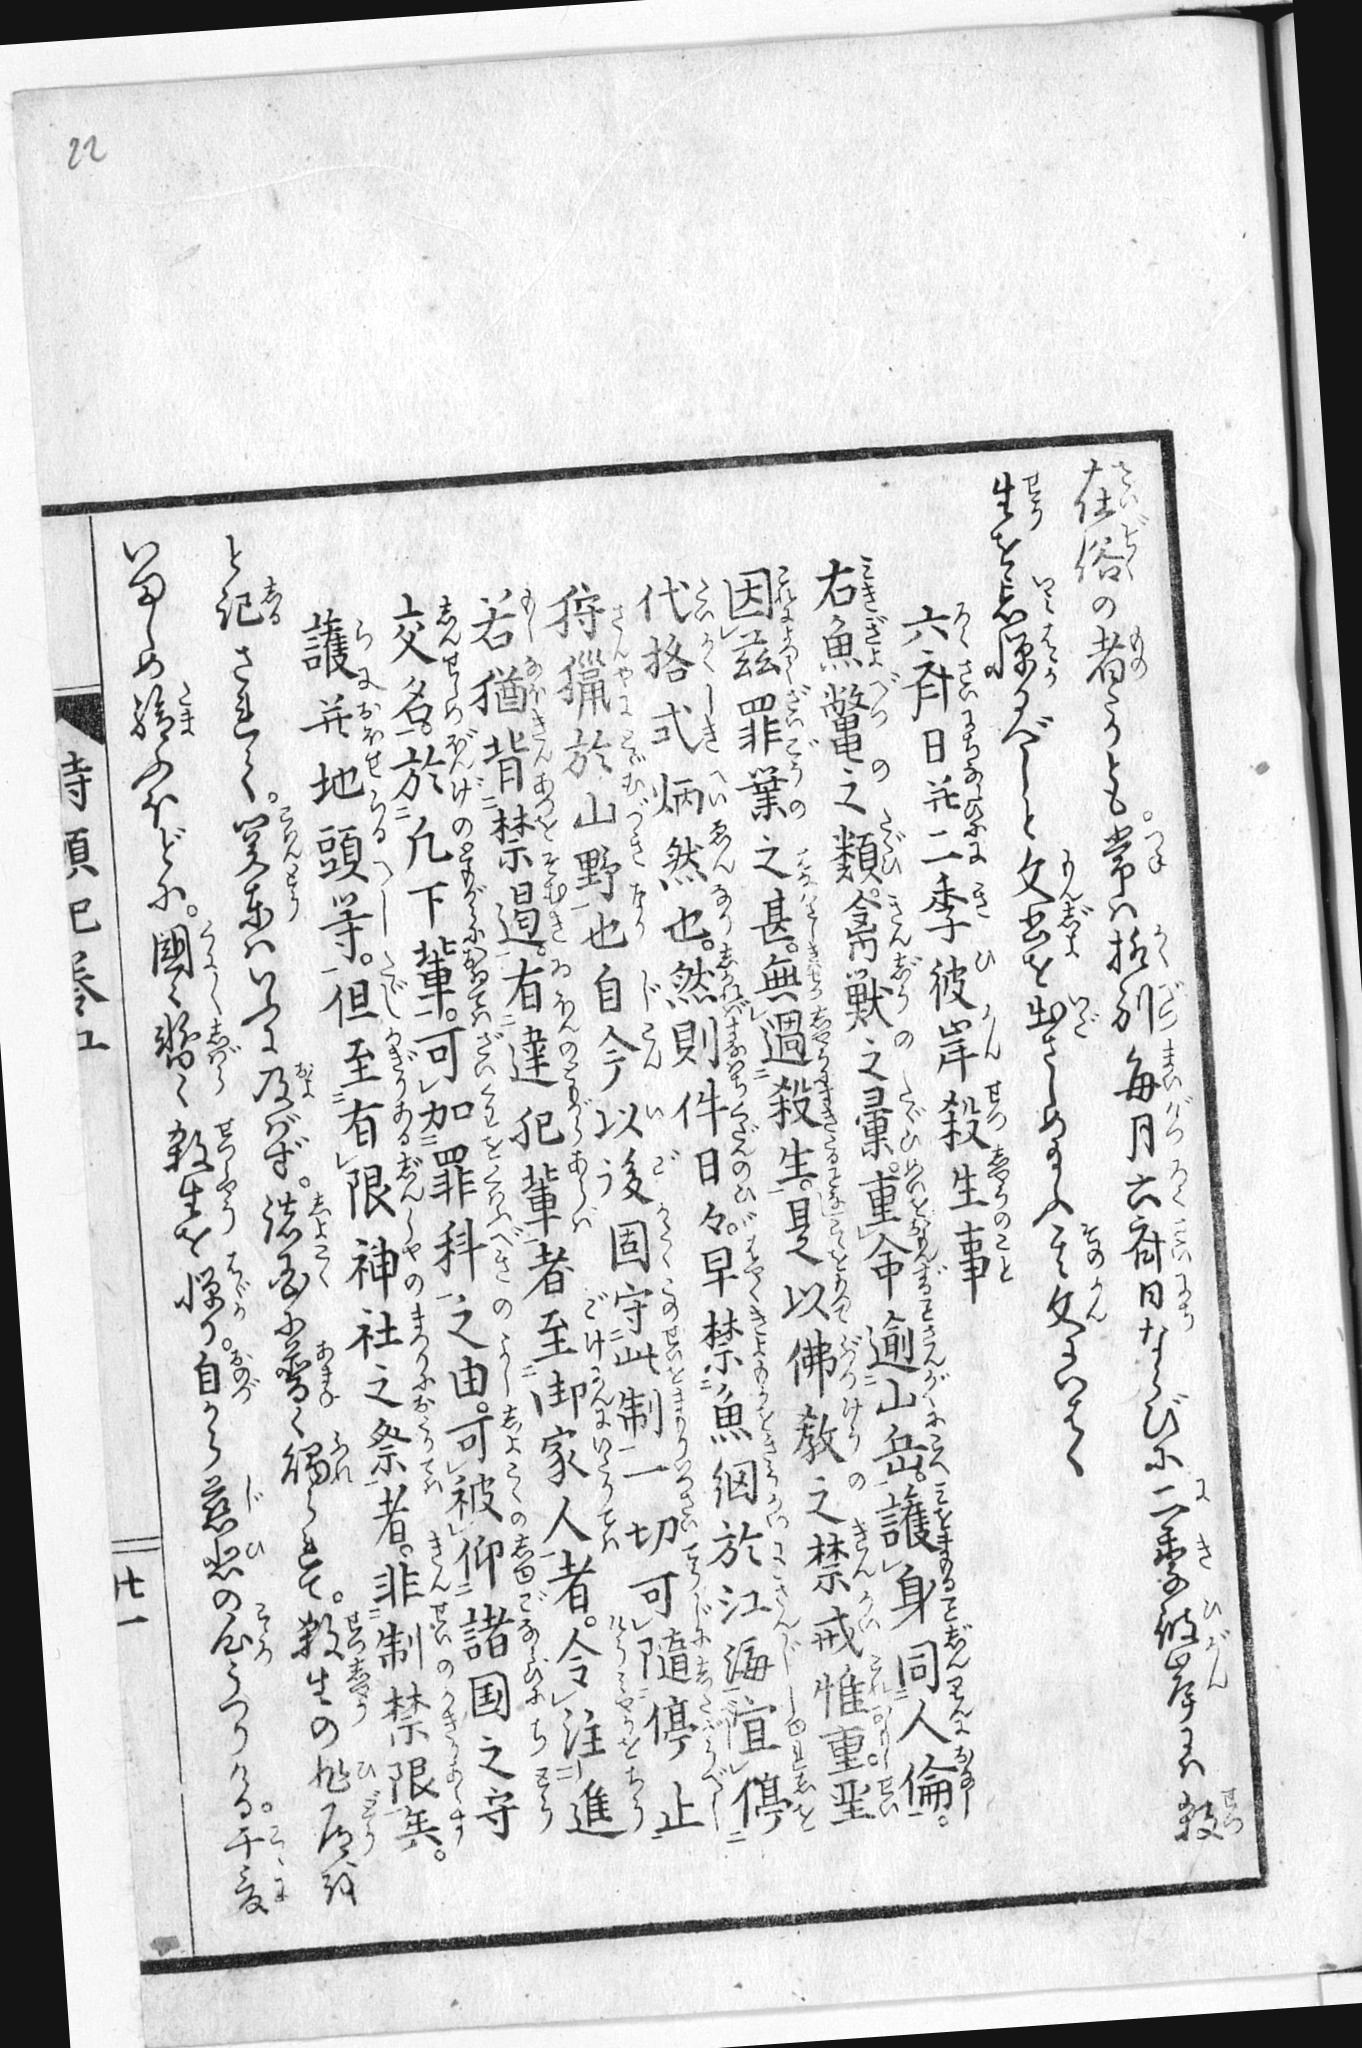 在俗の者たりとも。常は格別毎月六斎日ならびに二季の彼岸には殺
生を忌憚るべしと文書を出さしめ給ふ其文にいはく
六斎日并二季彼岸殺生事
右魚鼈之類。禽獣之彙。重命逾山岳。護身同人倫。
因茲罪業之甚。無過殺生。是以佛教之禁戒惟重。聖
代格式炳然也。然則件日々。早禁魚網於江海宜停
狩猟於山野也自今以後固守此制一切可随停止
若猶背禁遏。有違犯輩者至御家人者。令注進
交名。於凡下輩。可加罪科之由。可被仰諸国之守
護并地頭等。但至有限神社之祭者。非制禁限矣。
と記されて。関東はいふに及ばず。諸国に普く触られて。殺生の非道を
いましめ給ふほどに。國々郡々殺生を憚り。自から慈悲の心うつりける。于爰
時頼記巻五
廿一
22